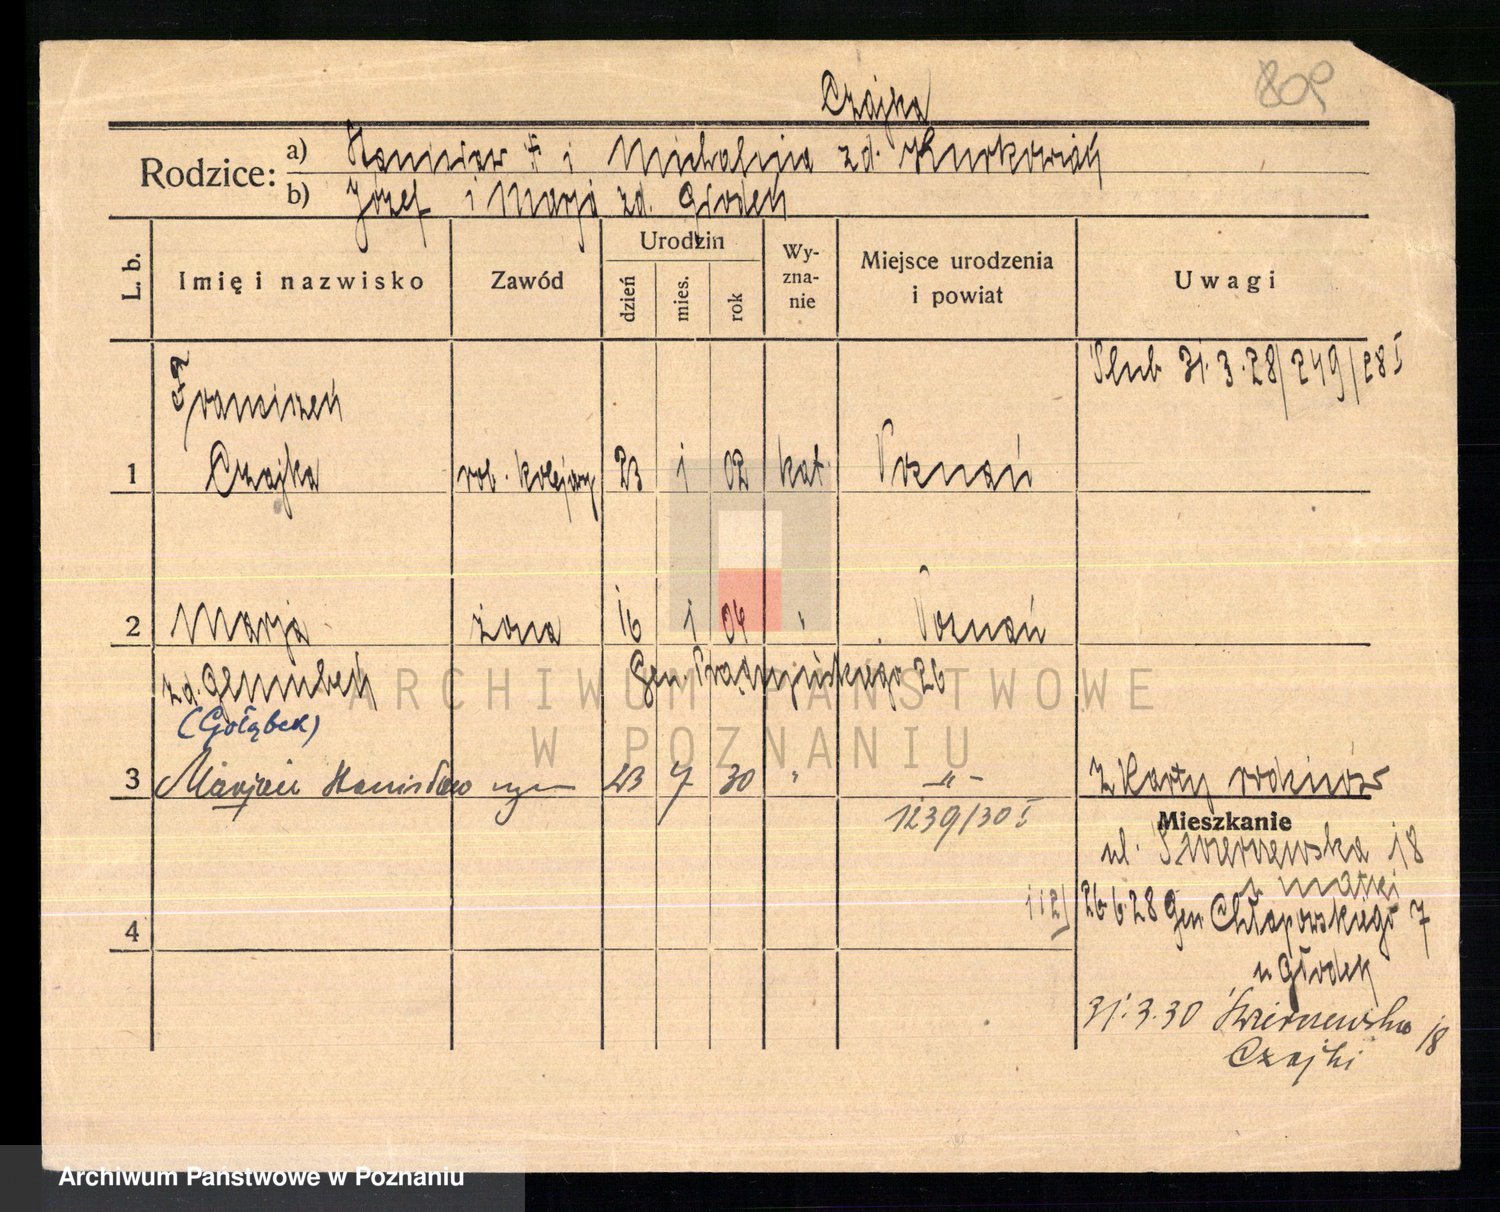 809
Czajka
Rodzice: a) Stanisław i Michalina zd. Kurkowiak
b) Józef i Marja zd. Głodek
L. b.
Imię i nazwisko
Zawód
Urodzin
dzień
mies.
rok
Wy-
zna-
nie
Miejsce urodzenia
i powiat
Uwagi
Ślub 31.3.28/249/28 I
Franciszek
1 Czajka rob. kolejowy 23 1 02 kat Poznań
2 Marja żona 16 1 04 " Poznań
zd.
Gen. Prądzyńskiego 26
ARCHIWUM PAŃSTWOWE
(Gołąbek)
W POZNANIU
3 Marjan Stanisław syn 23 7 30 " -"-
Z Karty rodziców
1239/30 I
Mieszkanie
ul. Skierniewska 18
u matki
112) 26.6.28 Gen Chłapowskiego 7
4
u Głodek
31.3.30 Skierniewska 18
Czajki
Archiwum Państwowe w Poznaniu